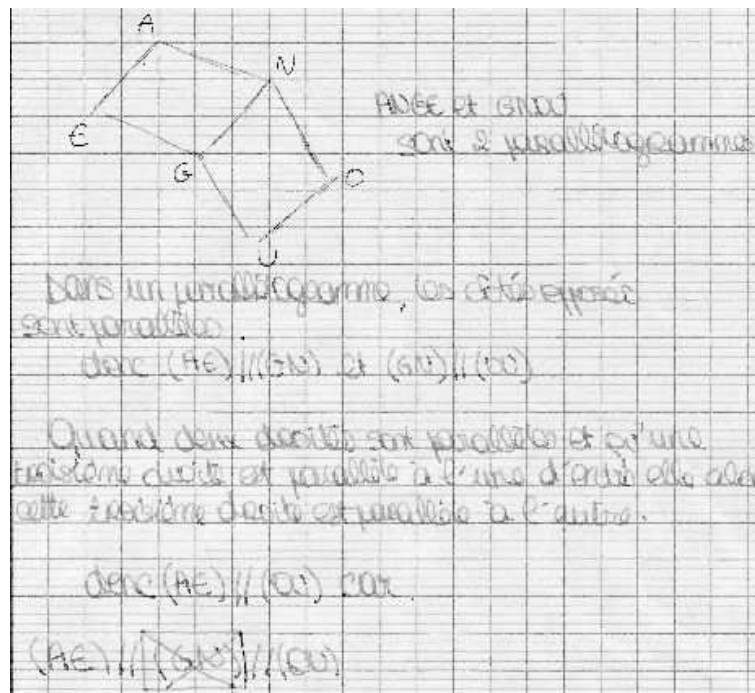 A
N
E
G
O
U
ANGE et GNOU
sont 2 parallélogrammes
Dans un parallélogramme, les côtés opposés
sont parallèles
donc (AE)//(GN) et (GN)//(OU)
Quand deux droites sont parallèles et qu'une
troisième droite est parallèle à l'une d'entre elle alors
cette troisième droite est parallèle à l'autre.
donc (AE)//(OU) car
(AE)//(GN)//(OU)